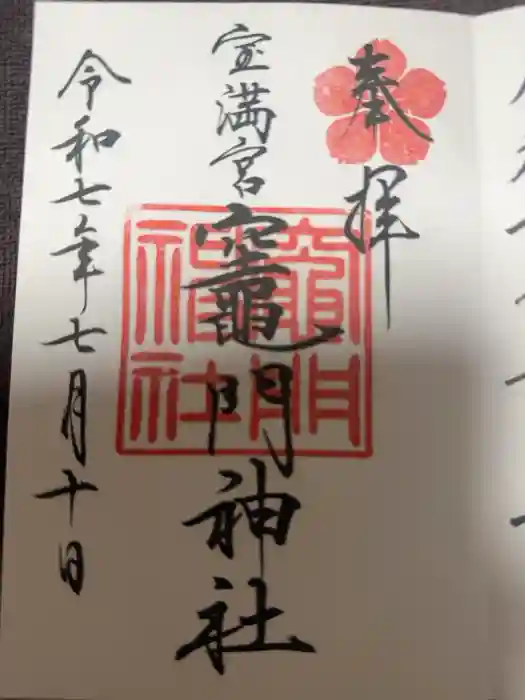 奉拝
宝満宮
竈門神社
竈門
神社
令和七年七月十日